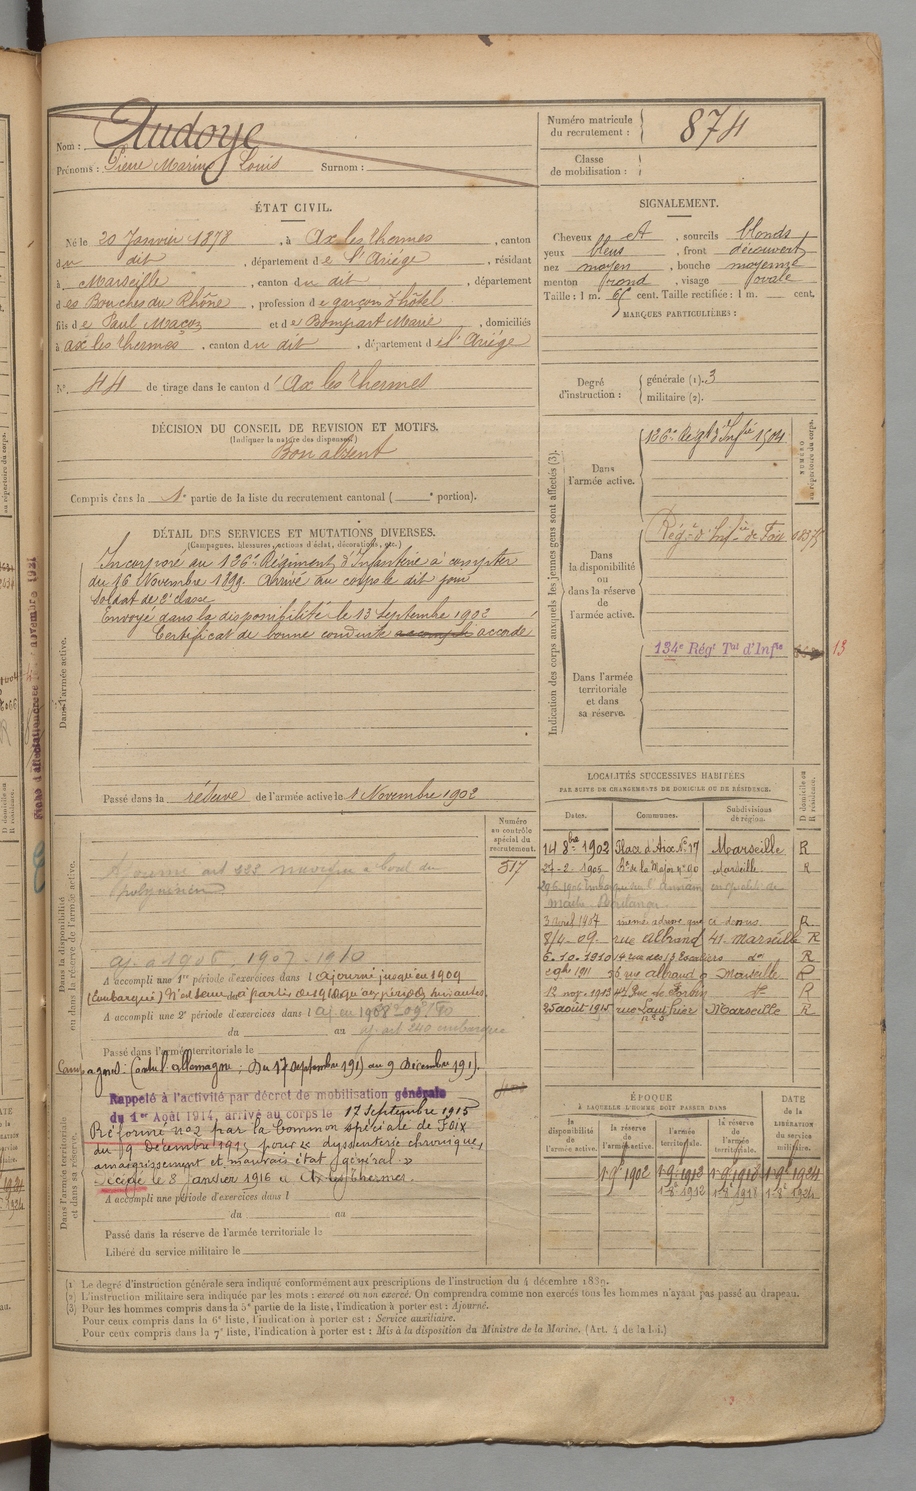 Nom : Audoye
Prénoms : Pierre Marius Louis Surnom :
Numéro matricule du recrutement : 874
Classe de mobilisation :
ÉTAT CIVIL.
Né le 20 Janvier 1878, à Ax les Thermes, canton
du dit, département de l'Ariège, résidant
à Marseille, canton du dit, département
des Bouches du Rhône, profession de garçon d'hôtel
fils de Paul et de Bompart Marie, domiciliés
à ax les Thermes, canton du dit, département de l'Ariége
N° 44 de tirage dans le canton d'Ax les Thermes
SIGNALEMENT.
Cheveux et, sourcils blonds
yeux bleus, front découvert
nez moyen, bouche moyenne
menton rond, visage ovale
Taille : 1 m. 65 cent. Taille rectifiée : 1 m. cent.
MARQUES PARTICULIÈRES :
Degré d'instruction : générale (1). 3
militaire (2).
DÉCISION DU CONSEIL DE REVISION ET MOTIFS.
(Indiquer la nature des dispenses.)
Bon absent
Compris dans la 1e partie de la liste du recrutement cantonal ( e portion).
DÉTAIL DES SERVICES ET MUTATIONS DIVERSES.
(Campagnes, blessures, actions d'éclat, décorations, etc.)
Dans l'armée active.
Incorporé au 126e Régiment d'Infanterie à compter
du 16 Novembre 1899. Arrivé au corps le dit jour
Soldat de 2e classe
Envoyé dans la disponibilité le 13 Septembre 1902
Certificat de bonne conduite accordé
Passé dans la réserve de l'armée active le 1 Novembre 1902
Indication des corps auxquels les jeunes gens sont affectés (3).
NUMÉRO au répertoire du corps.
Dans l'armée active.
126e Régt d'Infie
Dans la disponibilité ou dans la réserve de l'armée active.
Régt d'Infie de Foix
Dans l'armée territoriale et dans sa réserve.
134e Régt Tal d'Infie
13
LOCALITÉS SUCCESSIVES HABITÉES
PAR SUITE DE CHANGEMENTS DE DOMICILE OU DE RÉSIDENCE.
D domicile ou R résidence.
Dates. Communes. Subdivisions de région.
14 8bre 1902 Place d'Aix n° 17 Marseille R
27-2-1905 Rue de la Major n° 90 Marseille R
3 Avril 1907 même adresse que ci dessus R
8/4-09. rue Albrand 41. Marseille R
6-10-1910 R
1911 rue albrand Marseille R
12 nov. 1913 Rue de Forbin R
25 août 1915 Marseille R
Dans la disponibilité ou dans la réserve de l'armée active.
Numéro au contrôle spécial du recrutement.
517
Ajourné art 223 navigue à bord du
Polynésien
aj. à 1906, 1907-1910
A accompli une 1re période d'exercices dans l ajourné jusqu'en 1909
(Embarqué)
A accompli une 2e période d'exercices dans l
du au
Passé dans l'armée territoriale le
Campagnes : Contre l'Allemagne ; Du 17 septembre 1915 au 9 Décembre 1915.
Dans l'armée territoriale et dans sa réserve.
Rappelé à l'activité par décret de mobilisation générale
du 1er Août 1914, arrivé au corps le 17 septembre 1915
Réformé n° 2 par la Common spéciale de Foix
du 9 Décembre 1915 pour « dyssenterie chronique,
amaigrissement et mauvais état général »
Décédé le 8 Janvier 1916 à Ax-les-Thermes.
A accompli une période d'exercices dans l
du au
Passé dans la réserve de l'armée territoriale le
Libéré du service militaire le
ÉPOQUE
À LAQUELLE L'HOMME DOIT PASSER DANS
DATE de la LIBÉRATION du service militaire.
la disponibilité de l'armée active.
la réserve de l'armée active.
l'armée territoriale.
la réserve de l'armée territoriale.
1-9e 1902 1-9e 1912 1-9e 1918 1-9e 1924
1-8e 1912 1-8e 1918 1-8e 1924
(1) Le degré d'instruction générale sera indiqué conformément aux prescriptions de l'instruction du 4 décembre 1889.
(2) L'instruction militaire sera indiquée par les mots : exercé ou non exercé. On comprendra comme non exercés tous les hommes n'ayant pas passé au drapeau.
(3) Pour les hommes compris dans la 5e partie de la liste, l'indication à porter est : Ajourné.
Pour ceux compris dans la 6e liste, l'indication à porter est : Service auxiliaire.
Pour ceux compris dans la 7e liste, l'indication à porter est : Mis à la disposition du Ministre de la Marine. (Art. 4 de la loi.)